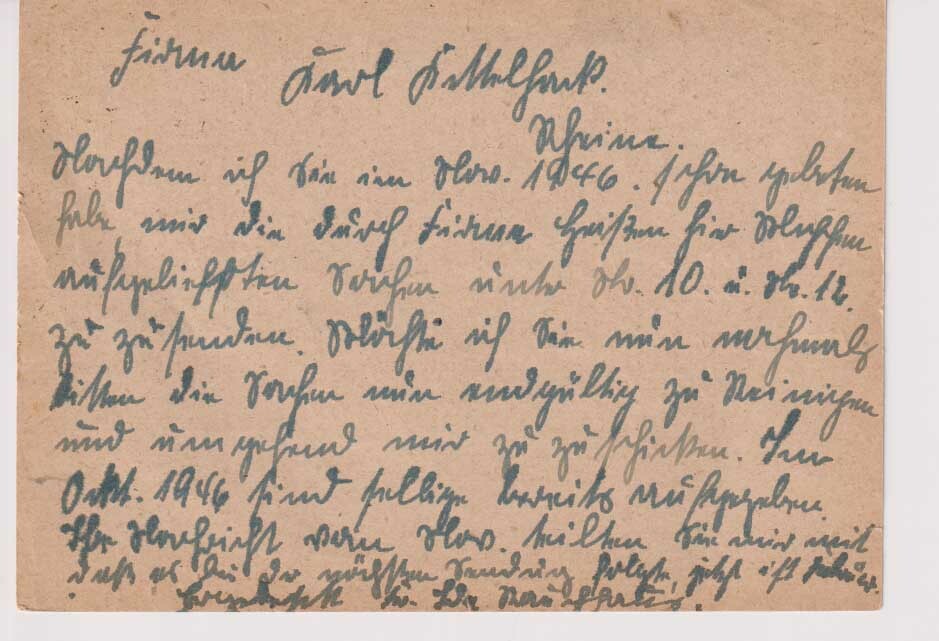 Firma
Karl Kettelhack.
Rheine.
Nachdem ich Sie im Nov. 1946. schon gebeten
habe, mir die durch Firma hier
Sachen unter Nr. 10. u. Nr. 12.
zu zu senden. Möchte ich Sie nun nochmals
bitten die Sachen nun endgültig zu Reinigen
und umgehend mir zu zu schicken. Im
Okt. 1946 sind sellige bereits aufgegeben.
Ihre Nachricht von Nov. teilten Sie mir mit
daß es die der nächsten Sendung folgte, jetzt ist